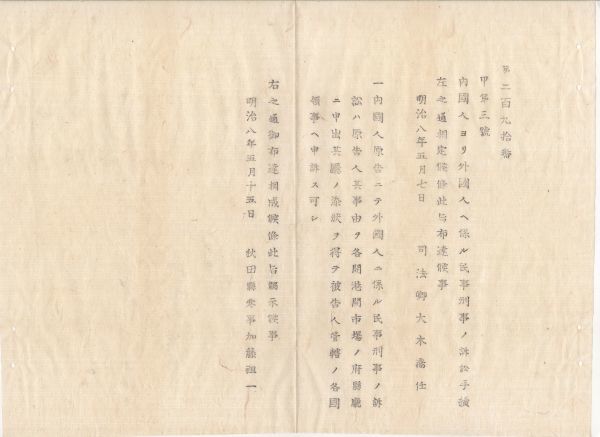 第二百九拾番
甲第三號
內國人ヨリ外國人ヘ係ル民事刑事ノ訴訟手續
左之通相定候條此旨布達候事
明治八年五月七日 司法卿大木喬任
一內國人原告ニテ外國人ニ係ル民事刑事ノ訴
訟ハ原告人其事由ヲ各開港開市場ノ府縣廳
ニ申出其廳ノ添狀ヲ得テ被告人管轄ノ各國
領事ヘ申訴ス可シ
右之通御布達相成候條此旨揭示候事
明治八年五月十五日 秋田縣參事加藤祖一